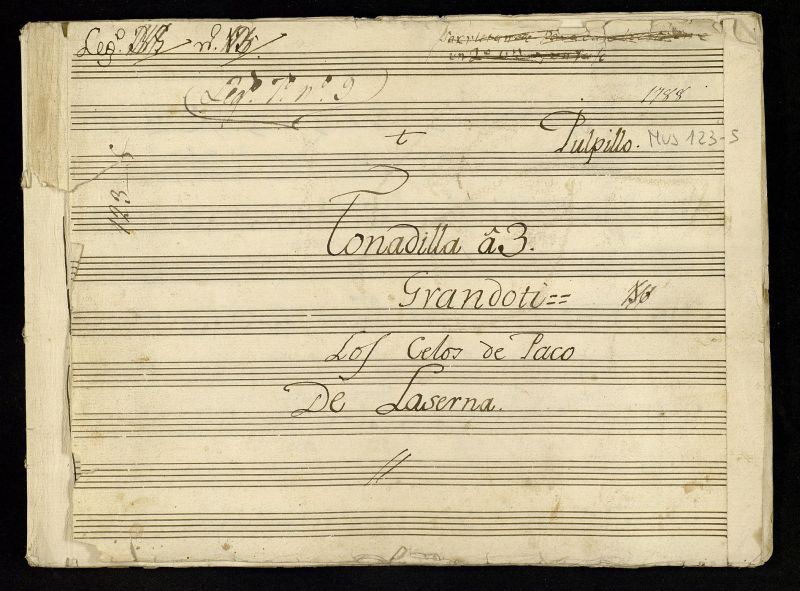 Legº. nº.
(Legº. 7º. nº. 9
1788
t
Pulpillo. MUS 123-5
123-5
Tonadilla â 3.
Grandoti==
Los Celos de Paco
De Laserna.